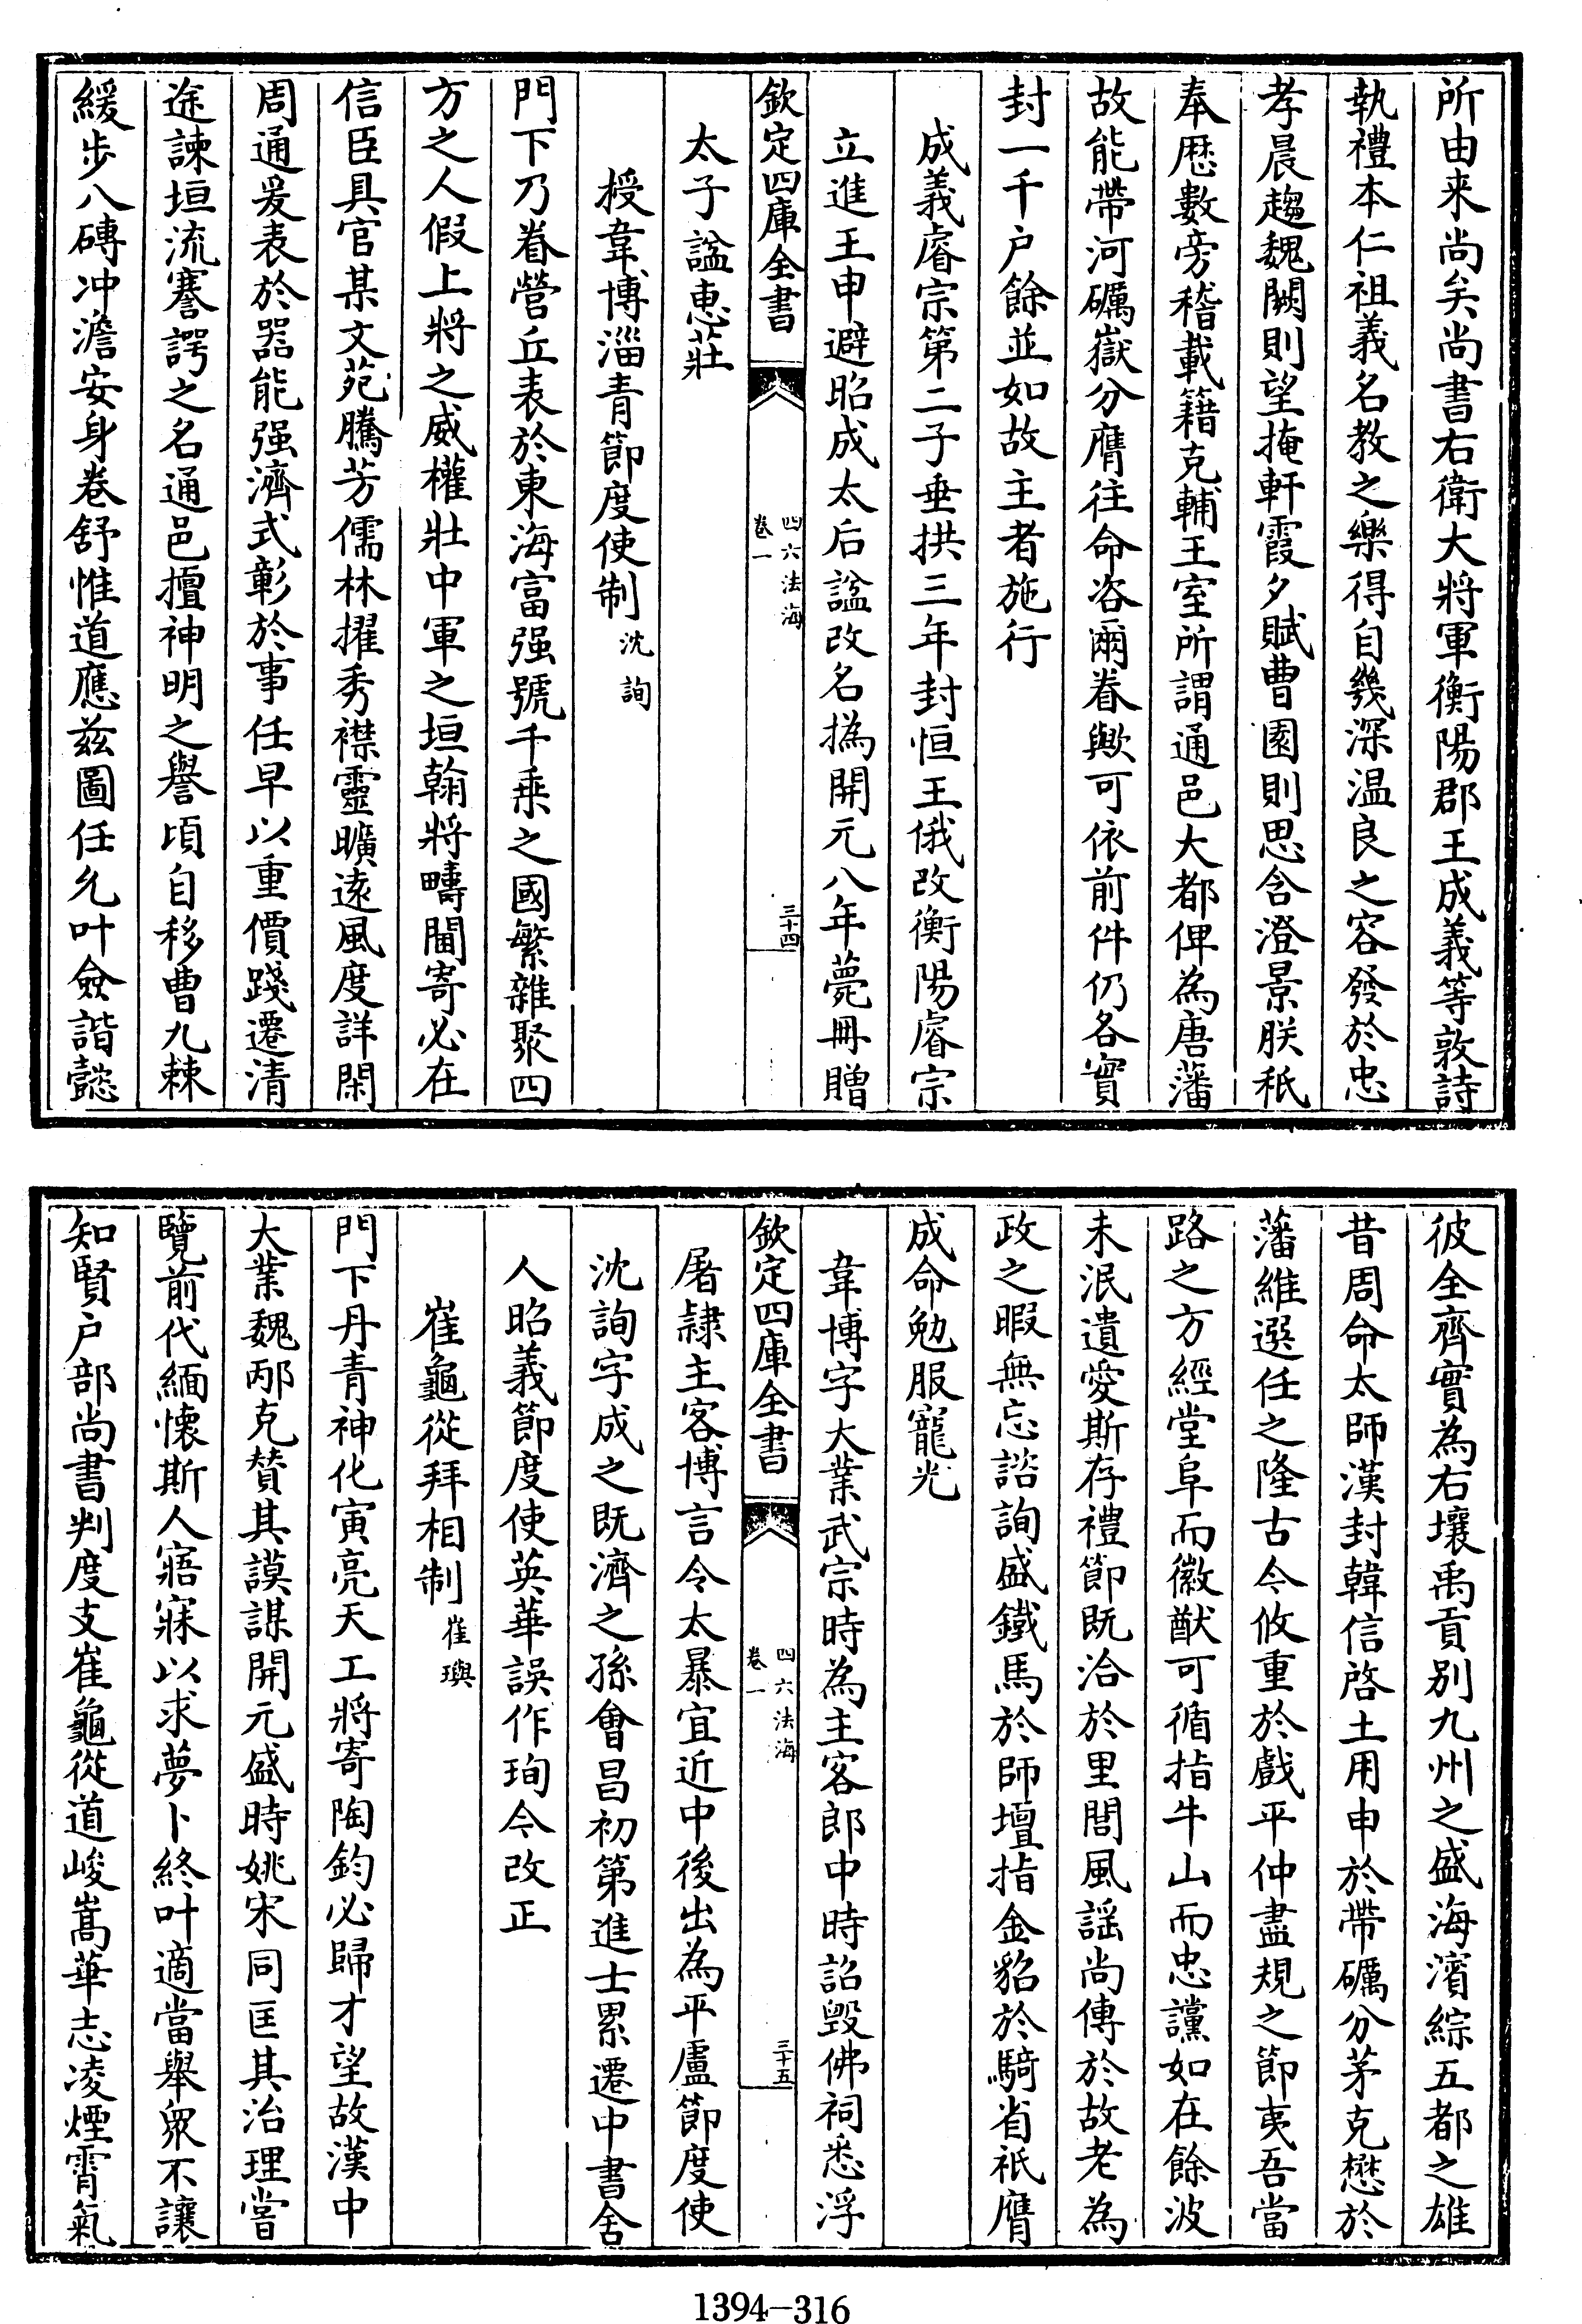 所由来尚矣尚書右衛大將軍衡陽郡王成義等敦詩
執禮本仁祖義名教之樂得自幾深温良之容發於忠
孝晨趨魏闕則望掩軒霞夕賦曹園則思含澄景朕祗
奉厯數旁稽載籍克輔王室所謂通邑大都俾為唐藩
故能帶河礪嶽分膺往命咨爾眷歟可依前件仍各實
封一千户餘並如故主者施行
成義睿宗第二子垂拱三年封恒王俄改衡陽睿宗
立進王申避昭成太后諡改名撝開元八年薨冊贈
欽定四庫全書
四六法海
卷一
三十四
太子諡惠莊
授韋博淄青節度使制 沈詢
門下乃眷營丘表於東海富强號千乗之國繁雜聚四
方之人假上將之威權壯中軍之垣翰將疇閫寄必在
信臣具官某文苑騰芳儒林擢秀襟靈曠逺風度詳閑
周通爰表於器能强濟式彰於事任早以重價踐遷清
途諫垣流謇諤之名通邑擅神明之譽頃自移曹九棘
緩步八磚冲澹安身卷舒惟道應兹圖任允叶僉諧懿
彼全齊實為右壤禹貢别九州之盛海濱綜五都之雄
昔周命太師漢封韓信啓土用申於帶礪分茅克懋於
藩維選任之隆古今攸重於戲平仲盡規之節夷吾當
路之方經堂阜而徽猷可循指牛山而忠讜如在餘波
未泯遺愛斯存禮節既洽於里閭風謡尚傳於故老為
政之暇無忘諮詢盛鐵馬於師壇指金貂於騎省祇膺
成命勉服寵光
韋博字大業武宗時為主客郎中時詔毁佛祠悉浮
欽定四庫全書
四六法海
卷一
三十五
屠隸主客博言令太暴宜近中後出為平盧節度使
沈詢字成之既濟之孫會昌初第進士累遷中書舍
人昭義節度使英華誤作珣今改正
崔龜從拜相制 崔璵
門下丹青神化寅亮天工將寄陶鈞必歸才望故漢中
大業魏邴克贊其謨謀開元盛時姚宋同匡其治理嘗
覽前代緬懷斯人寤寐以求夢卜終叶適當舉衆不讓
知賢户部尚書判度支崔龜從道峻嵩華志凌煙霄氣
1394-316